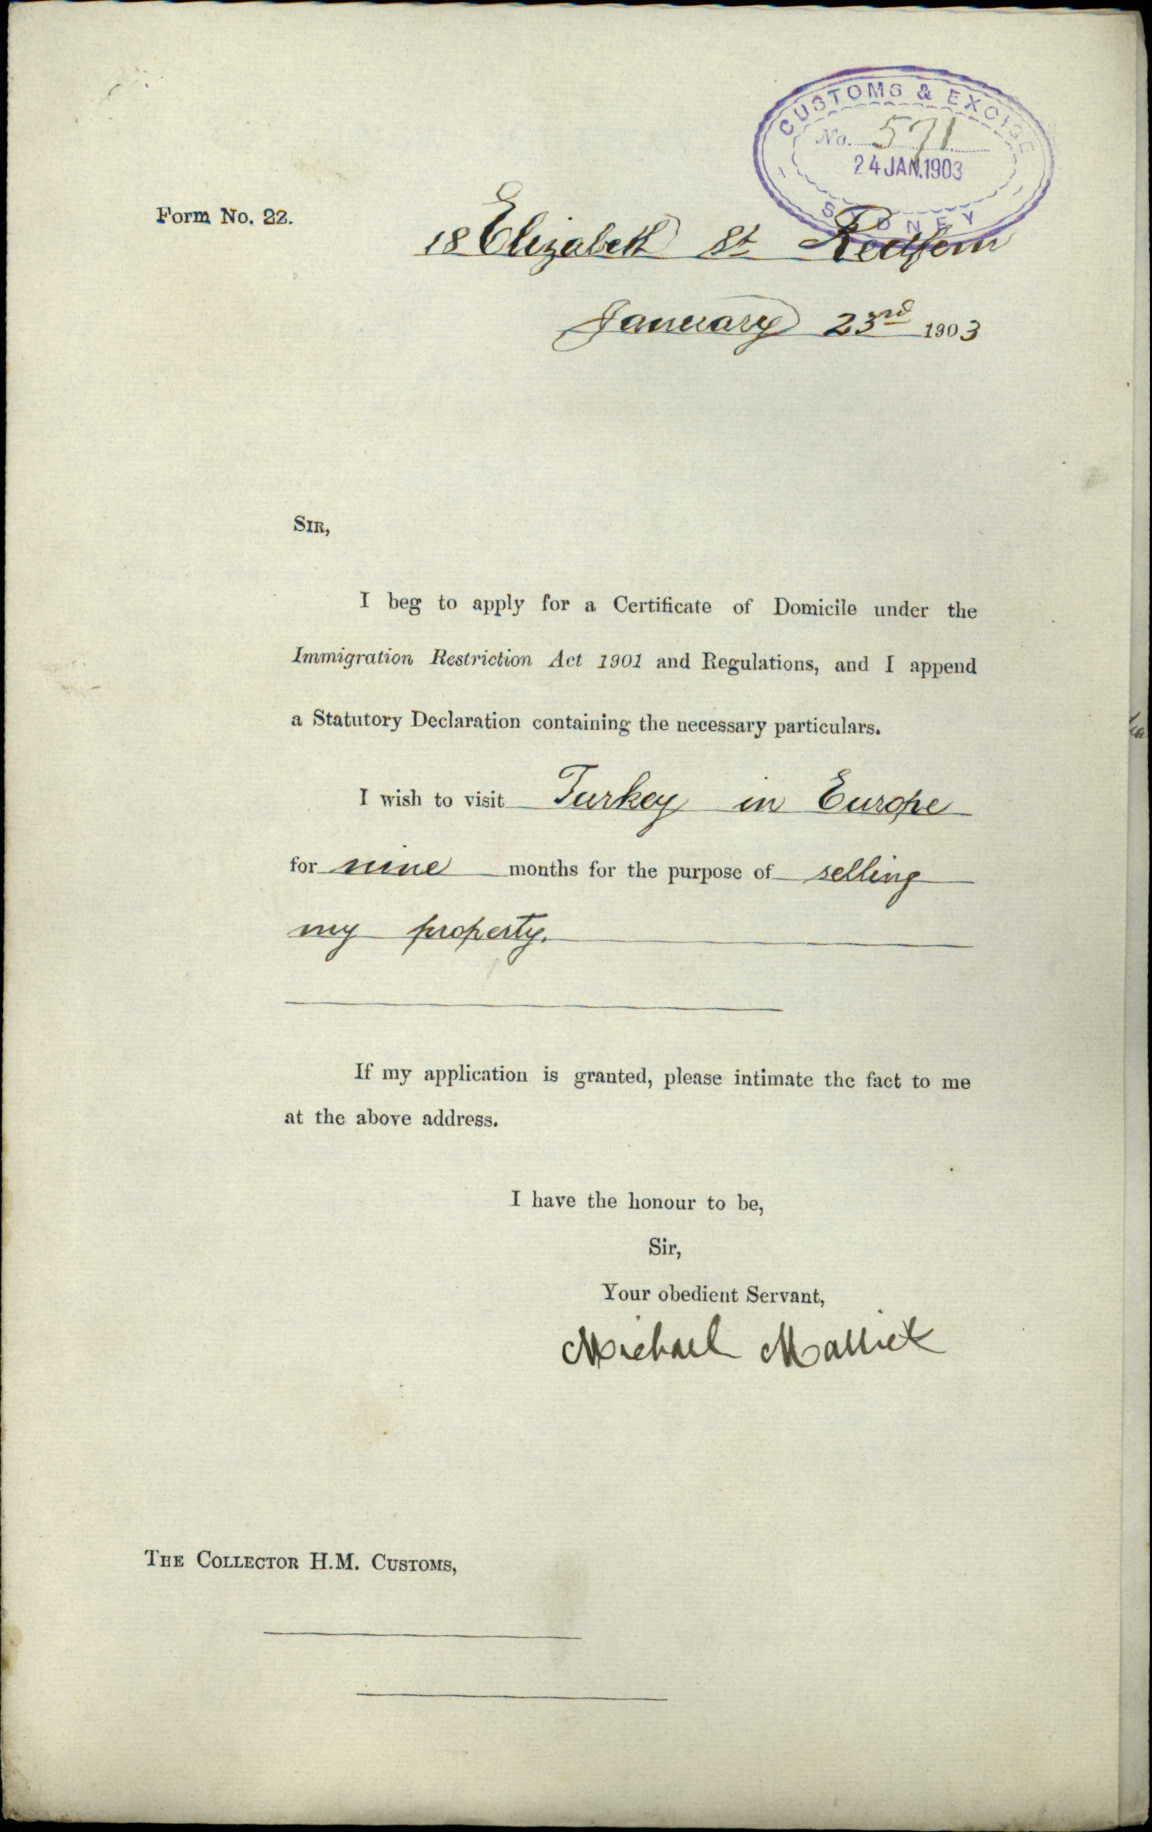 CUSTOMS & EXCISE
No. 571
24 JAN. 1903
SYDNEY
Form No. 22.
18 Elizabeth St Redfern
January 23rd 1903
SIR,
I beg to apply for a Certificate of Domicile under the
Immigration Restriction Act 1901 and Regulations, and I append
a Statutory Declaration containing the necessary particulars.
I wish to visit Turkey in Europe
for nine months for the purpose of selling
my property.
If my application is granted, please intimate the fact to me
at the above address.
I have the honour to be,
Sir,
Your obedient Servant,
Michael Mallick
THE COLLECTOR H.M. CUSTOMS,